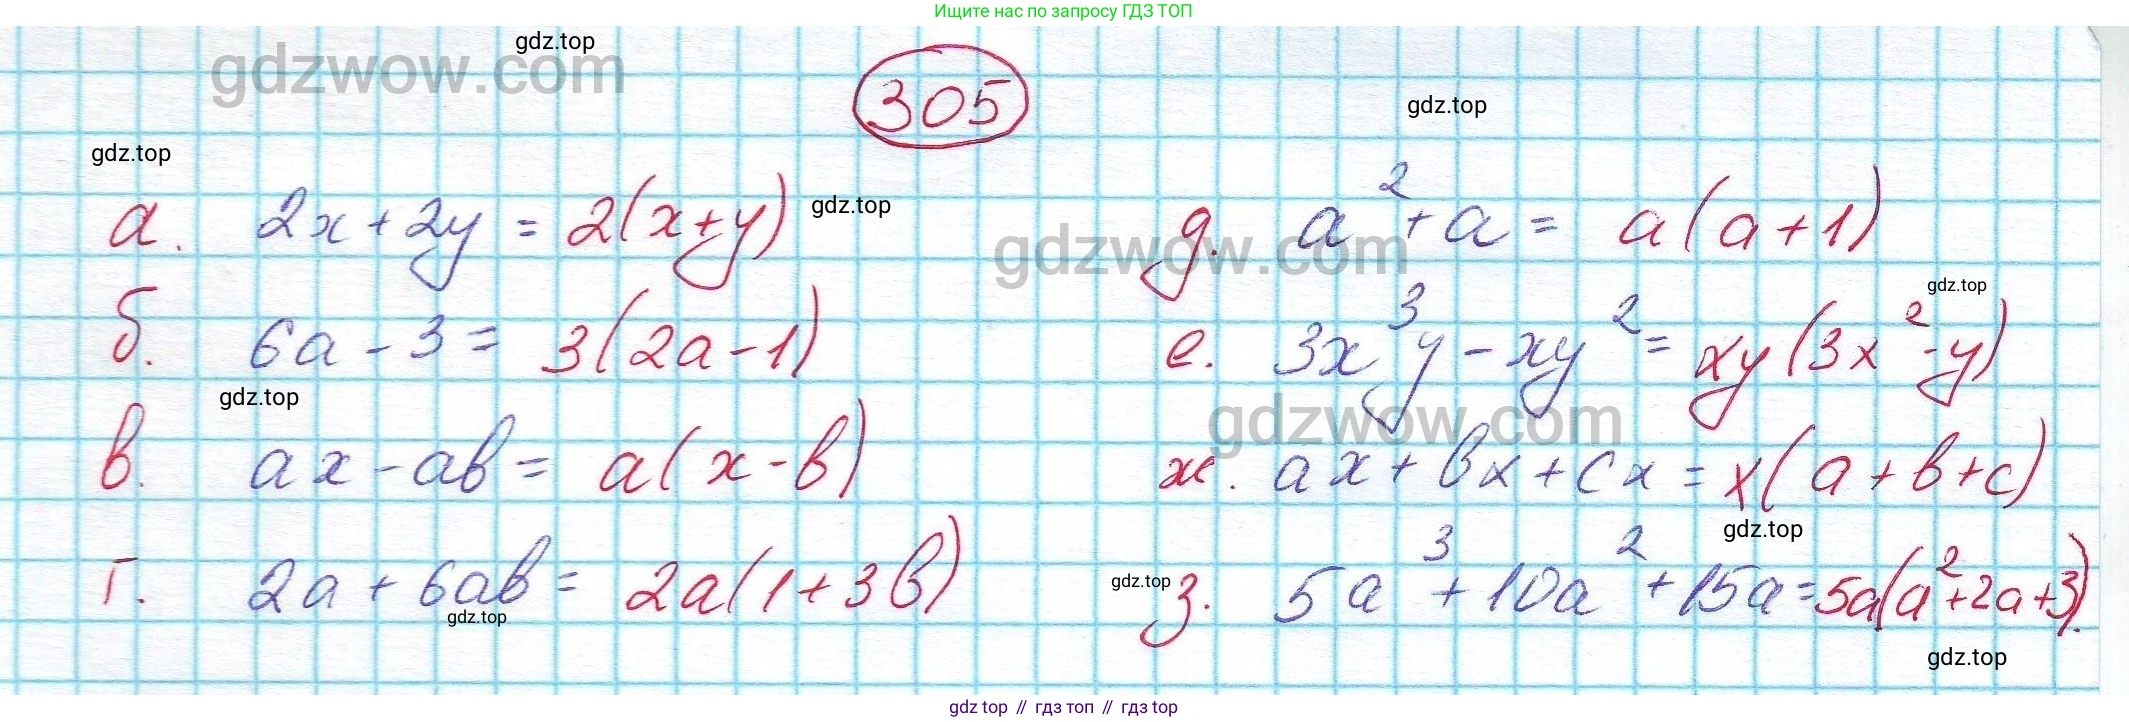 Ищите нас по запросу ГДЗ ТОП
gdzwow.com
gdz.top
305
gdz.top
gdz.top
а. 2x + 2y = 2(x+y)
gdz.top
gdzwow.com
д. a² + a = a(a+1)
б. 6a - 3 = 3(2a-1)
gdz.top
е. 3x³y - xy² = xy(3x² - y)
gdz.top
gdzwow.com
в. ax - ab = a(x-b)
ж. ax + bx + cx = x(a+b+c)
gdz.top
г. 2a + 6ab = 2a(1+3b)
gdz.top
gdz.top
з. 5a³ + 10a² + 15a = 5a(a²+2a+3).
gdz.top
gdz top // гдз топ // gdz top